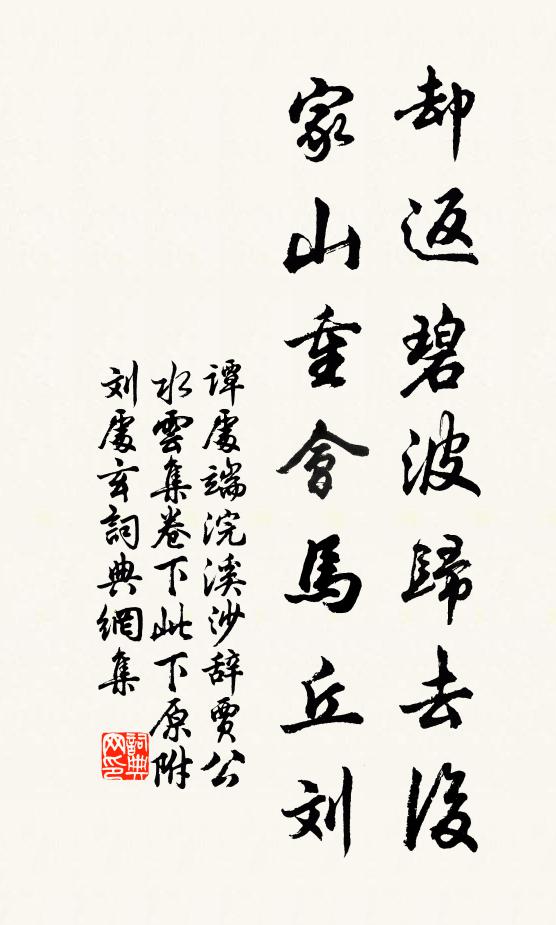 却返碧波歸去後
家山重會馬丘刘
譚處端浣溪沙辞賈公
水雲集卷下此下原附
刘處玄詞典網集
詞典网印